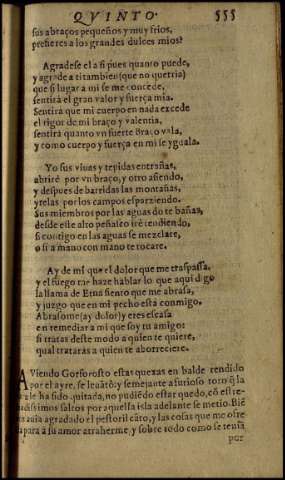 QVINTO. 555
sus abraços pequeños y muy frios,
prefieres a los grandes dulces mios?
Agradesele a si pues quanto puede,
y agrade a ti tambien (que no querria)
que si lugar a mi se me concede,
sentirà el gran valor y fuerça mia.
Sentira que mi cuerpo en nada excede
el rigor de mi braço y valentia,
sentira quanto vn fuerte braço vala,
y como cuerpo y fuerça en mi se yguala.
Yo sus viuas y tepidas entrañas,
abrirè por vn braço, y otro asiendo,
y despues de barridas las montañas,
yrelas por los campos esparziendo.
Sus miembros por las aguas do te bañas,
desde este alto peñasco irè tendiendo,
si contigo en las aguas se mezclare,
o si a mano con mano te tocare.
Ay de mi que el dolor que me traspassa,
y el fuego me haze hablar lo que aqui digo
la llama de Etna siento que me abrasa,
y juzgo que en mi pecho està conmigo.
Abrasome (ay dolor) y eres escasa
en remediar a mi que soy tu amigo:
si tratas deste modo a quien te quiere,
qual trataràs a quien te aborreciere.
AViendo Gorforosto estas quexas en balde tendido
por el ayre, se leuãtò, y semejante a furioso toro q̃ la
le ha sido quitada, no pudiẽdo estar quedo, cõ este-
didissimos saltos por aquella isla adelante se metio. Biẽ
auia agradado el pastoril cãto, y las cosas que me ofre
para à su amor atraherme, y sobre todo como se tenia
por